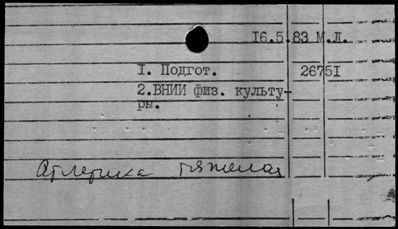 16.5.83 М.Л.
1. Подгот. 26751
2.ВНИИ физ. культу-
ры.
Атлетика тяжелая